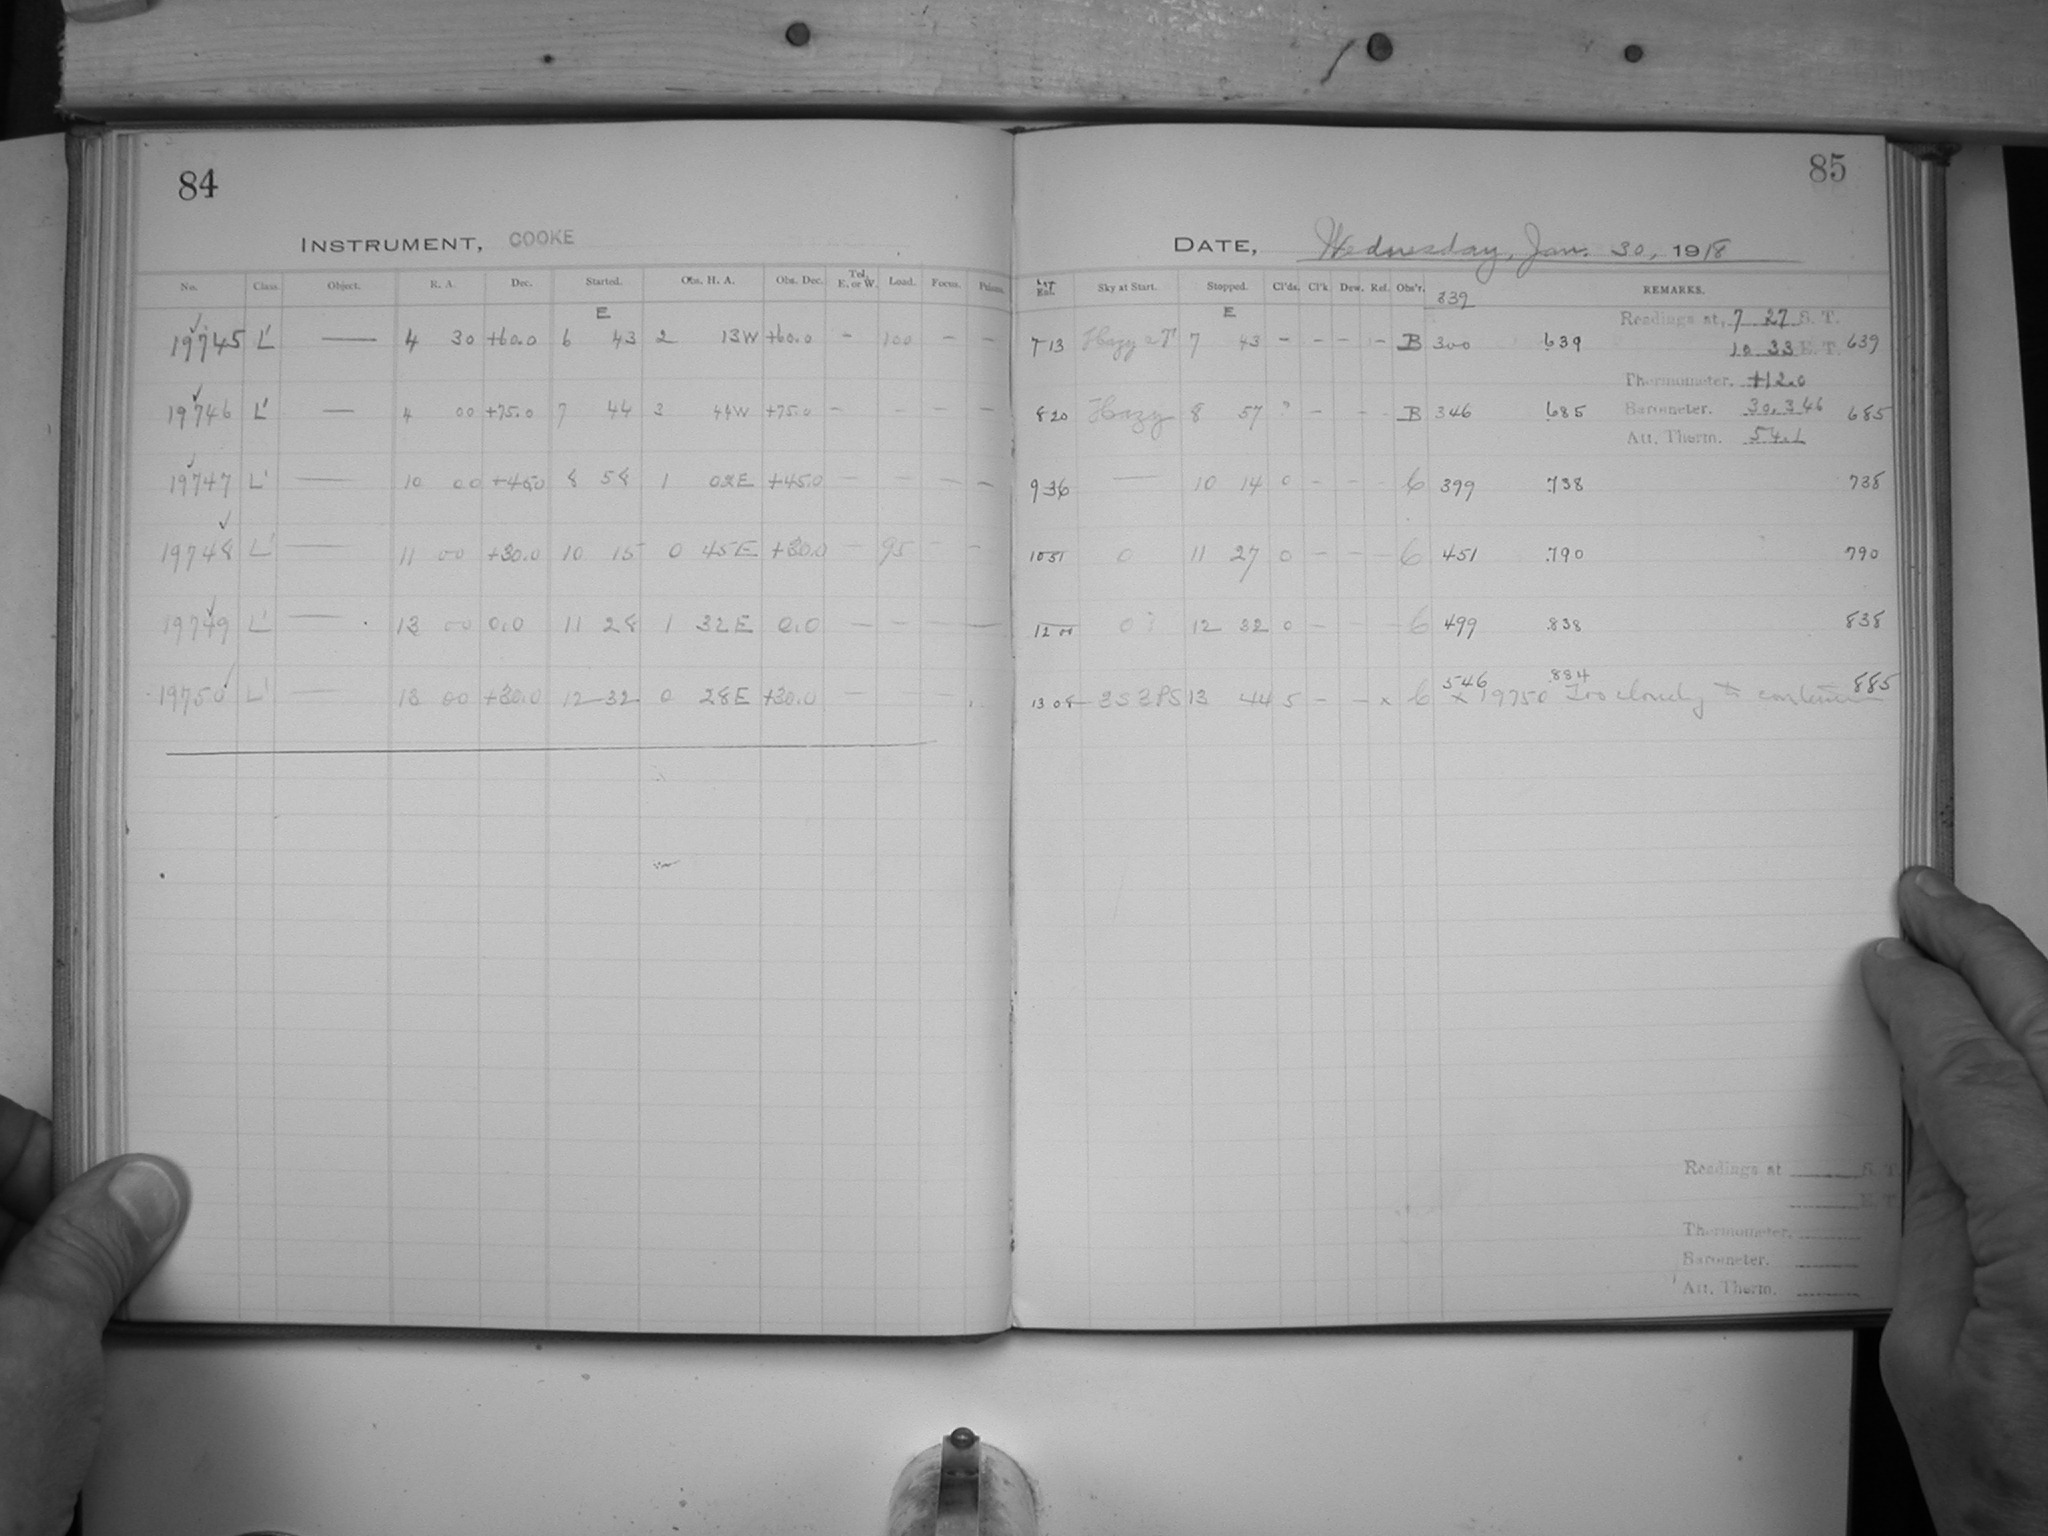 84
INSTRUMENT, COOKE
No. Class. Object. R. A. Dec. Started. Obs. H. A. Obs. Dec. Tel. E. or W. Load. Focus.
E
19745 L' — 4 30 +60.0 6 43 2 13W +60.0 - 100 - -
19746 L' — 4 00 +75.0 7 44 3 44W +75.0 - - - -
19747 L' — 10 00 +45.0 8 58 1 02E +45.0 - - - -
19748 L' — 11 00 +30.0 10 15 0 45E +30.0 - 95 - -
19749 L' — 13 00 0.0 11 28 1 32E 0.0 - - - -
19750 L' — 13 00 +30.0 12 32 0 28E +30.0 - -
85
DATE, Wednesday, Jan. 30, 1918
Est. Sky at Start. Stopped. Cl'ds. Cl'k. Dew. Rel. Obs'r. 839 REMARKS.
E
Readings at, 7 27 S. T.
7 13 Hazy 7 43 - - - - B 300 .639 10 33 E. T. 639
Thermometer. +12.0
8 20 Hazy 8 57 ? - - - B 346 .685 Barometer. 30.346 685
Att. Therm. 54.1
9 36 — 10 14 0 - - - 6 399 .738 738
10 51 0 11 27 0 - - - 6 451 .790 790
12 00 0 12 32 0 - - - 6 499 .838 838
546 .884 885
13 08 3S 2PS 13 44 5 - - x 6 x 19750 Too cloudy to continue
Readings at S. T.
E. T.
Thermometer.
Barometer.
Att. Therm.